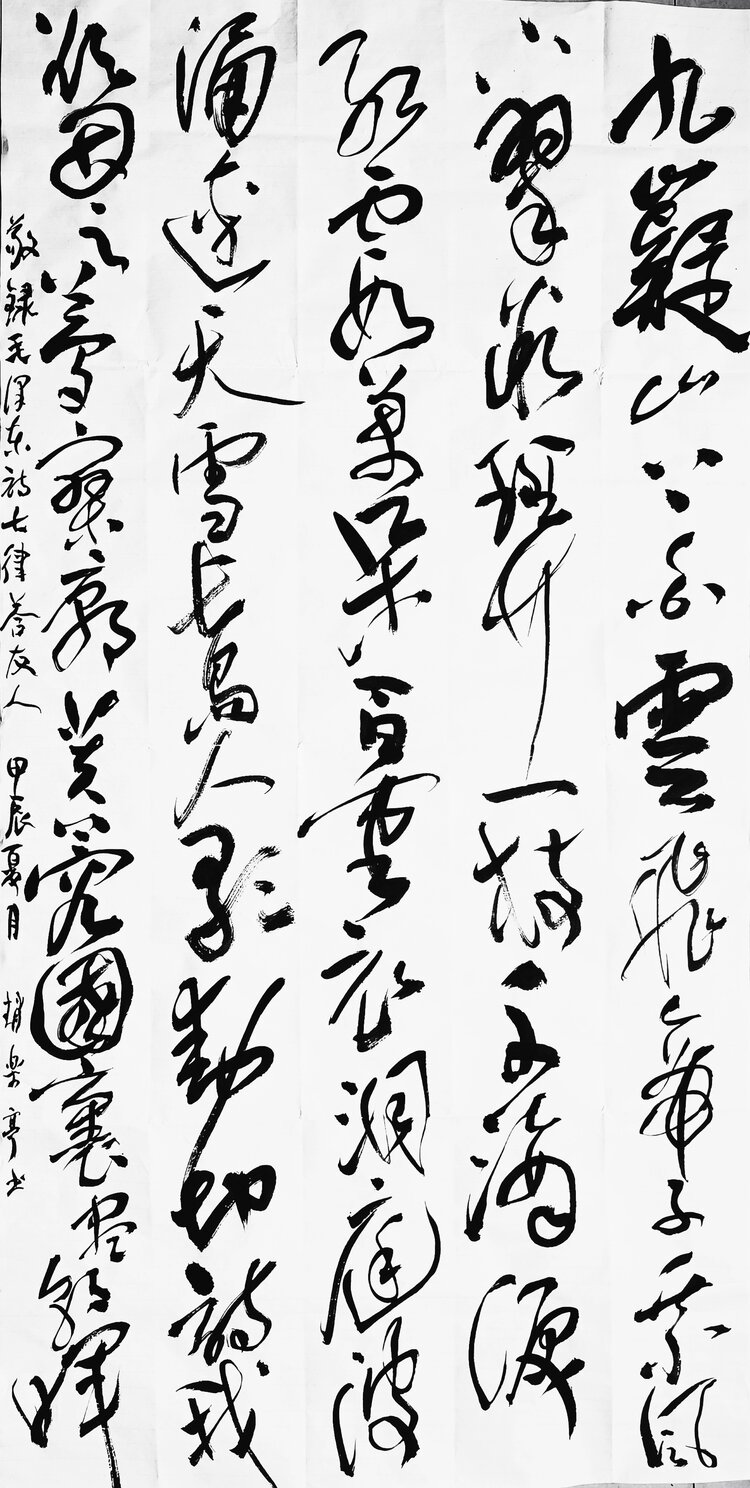 九嶷山上白雲飛帝子乘風
下翠微斑竹一枝千滴淚
紅霞萬朵百重衣洞庭波
涌連天雪長島人歌動地詩我
欲因之夢寥廓芙蓉國裏盡朝暉
敬録毛澤東詩七律答友人 甲辰夏月 趙樂亭书